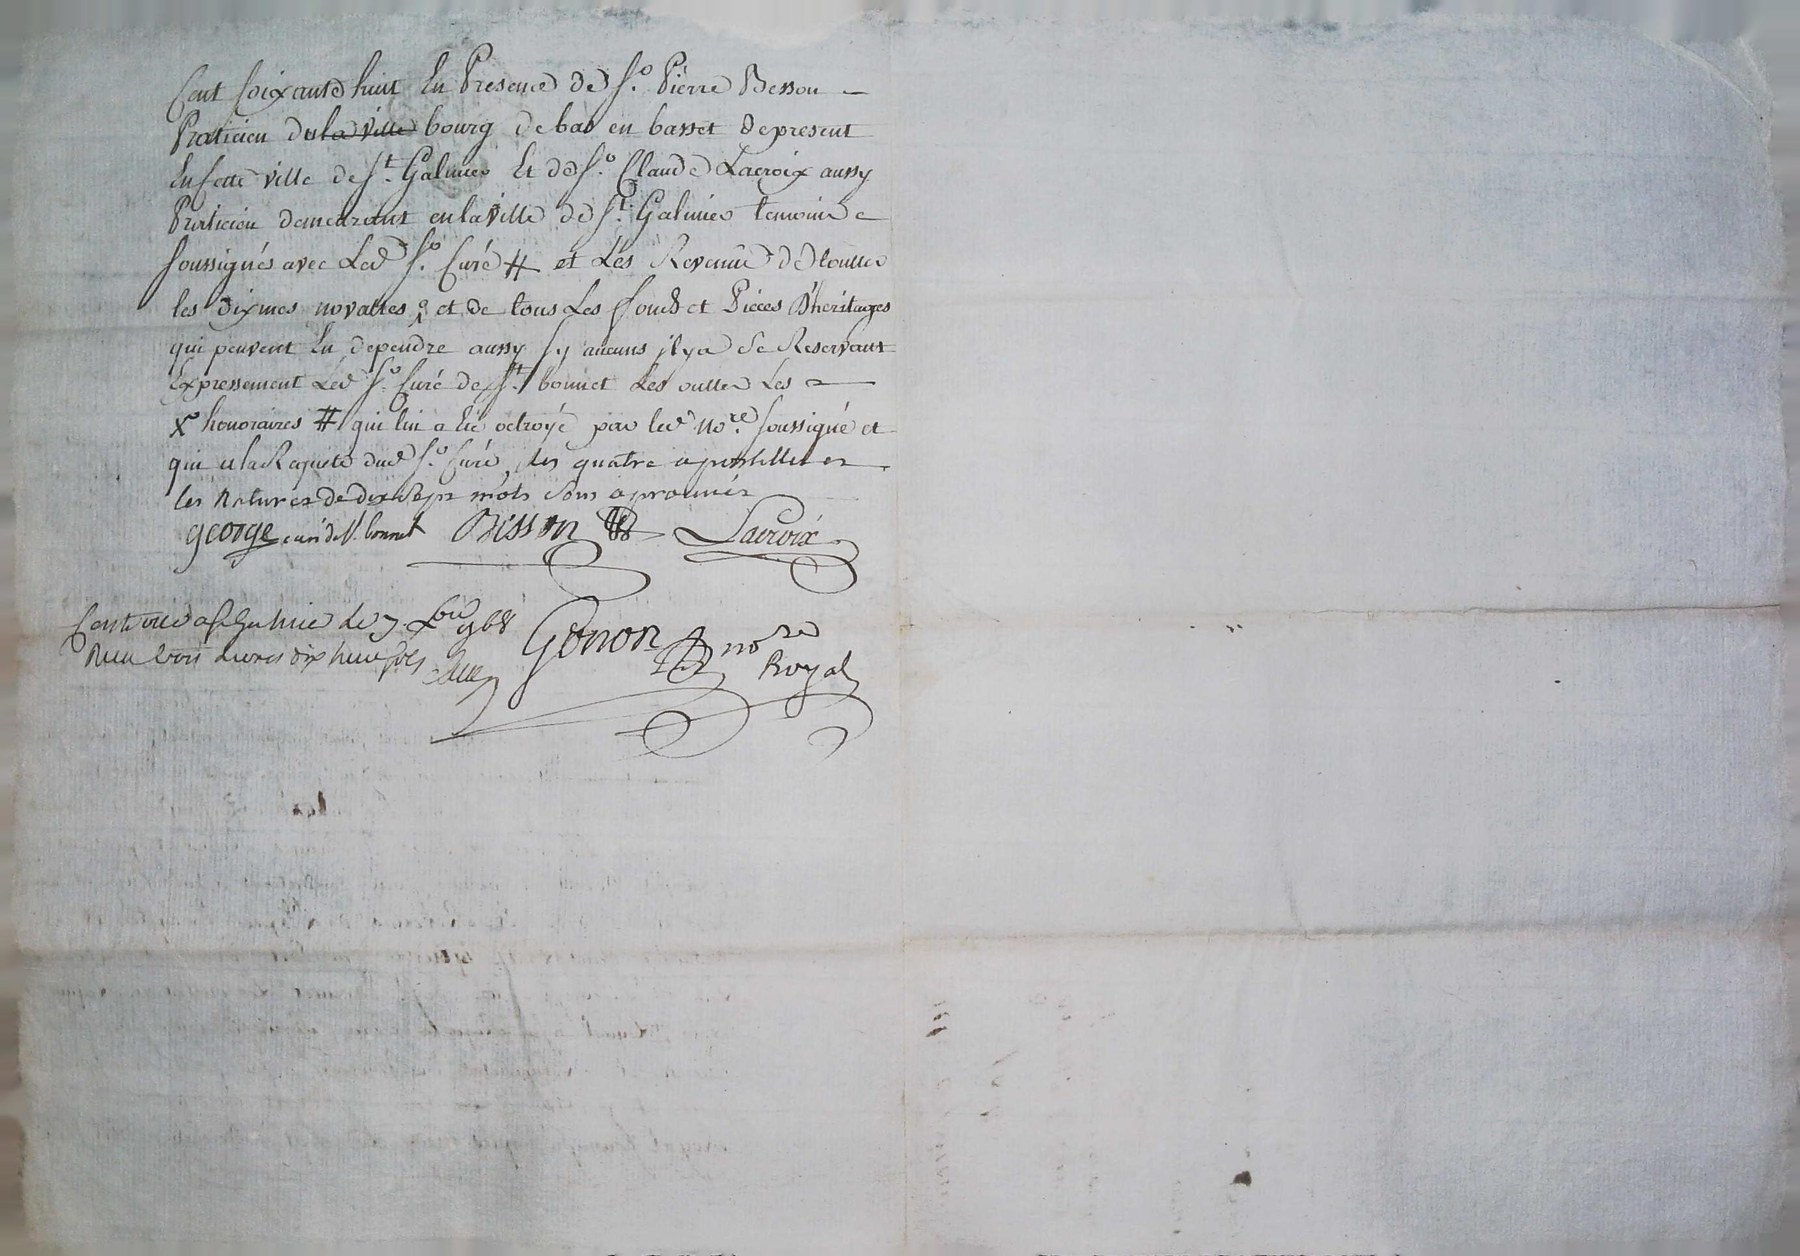 Cent soixante huit En Presence de Sr. Pierre Besson
Praticien du la ville bourg de bas en basset de present
En cette ville de St. Galmier Et de Sr. Claude Lacroix aussy
Praticien demeurant en la ville de St. Galmier temoins
soussignés avec Led Sr. Curé # et Les Revenus de touttes
les dixmes novalles, et de tous Les fonds et Pieces D'heritages
qui peuvent En dependre aussy sy aucuns jl y a Se Reservant
Expressement Led Sr. Curé de St. bonnet Les
X honoraires # qui lui a été octroyé par led nore. soussigné et
qui a la Requete dud Sr. Curé, les quatre apostilles et
les Ratures de dix sept mots sont aprouvées
george curé de St. bonnet Besson Lacroix
Controllé a St Galmier le 7 Xbre 1768
Reçu trois livres dix huit sols
Gonon nore
Royal